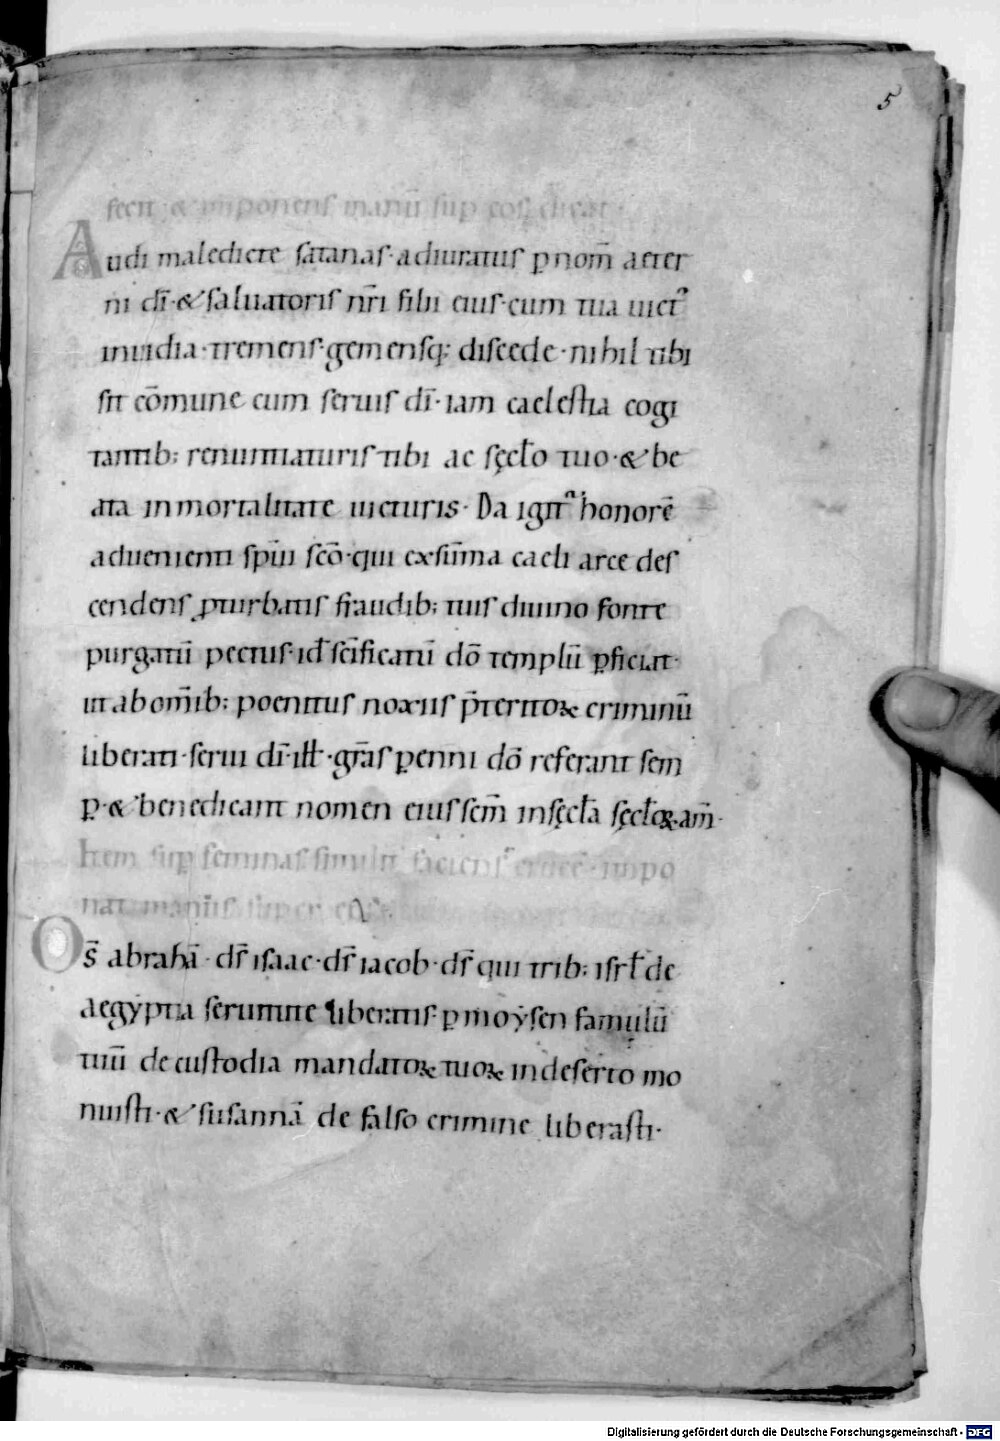 5
fecit · & imponens manū sup eos dicat ·
Audi maledicte satanas · adiuratus p nom̄ aeter
ni dī · & saluatoris nr̄i filii eius · cum tua uict᷒
inuidia · tremens · gemensq; discede · nihil tibi
sit cōmune cum seruis dī · iam caelestia cogi
tantib; renuntiaturis tibi ac sęcło tuo · & be
ata inmortalitate uicturis · Da igit᷒ honorē
aduenienti spiui sc̄o · qui ex sūma caeli arce des
cendens pturbatis fraudib; tuis diuino fonte
purgatū pectus · id sc̄ificatū dō templū pficiat ·
ut ab om̄ib; poenitus noxiis p̄teritoꝝ criminū
liberati · serui dī · iłł · gr̄as penni dō referant sem
p · & benedicant nomen eius sem̄ in sęcła sęcłoꝝ · am̄ ·
Item sup feminas simulit᷒ faciens crucē · impo
nat manūs super eas ·
Os̄ abrahā · ds̄ isaac · ds̄ iacob · ds̄ qui trib; isrł de
aegyptia seruitute liberatis · p moẏsen famulū
tuū de custodia mandatoꝝ tuoꝝ in deserto mo
nuisti · & susannā de falso crimine liberasti ·
Digitalisierung gefördert durch die Deutsche Forschungsgemeinschaft - DFG